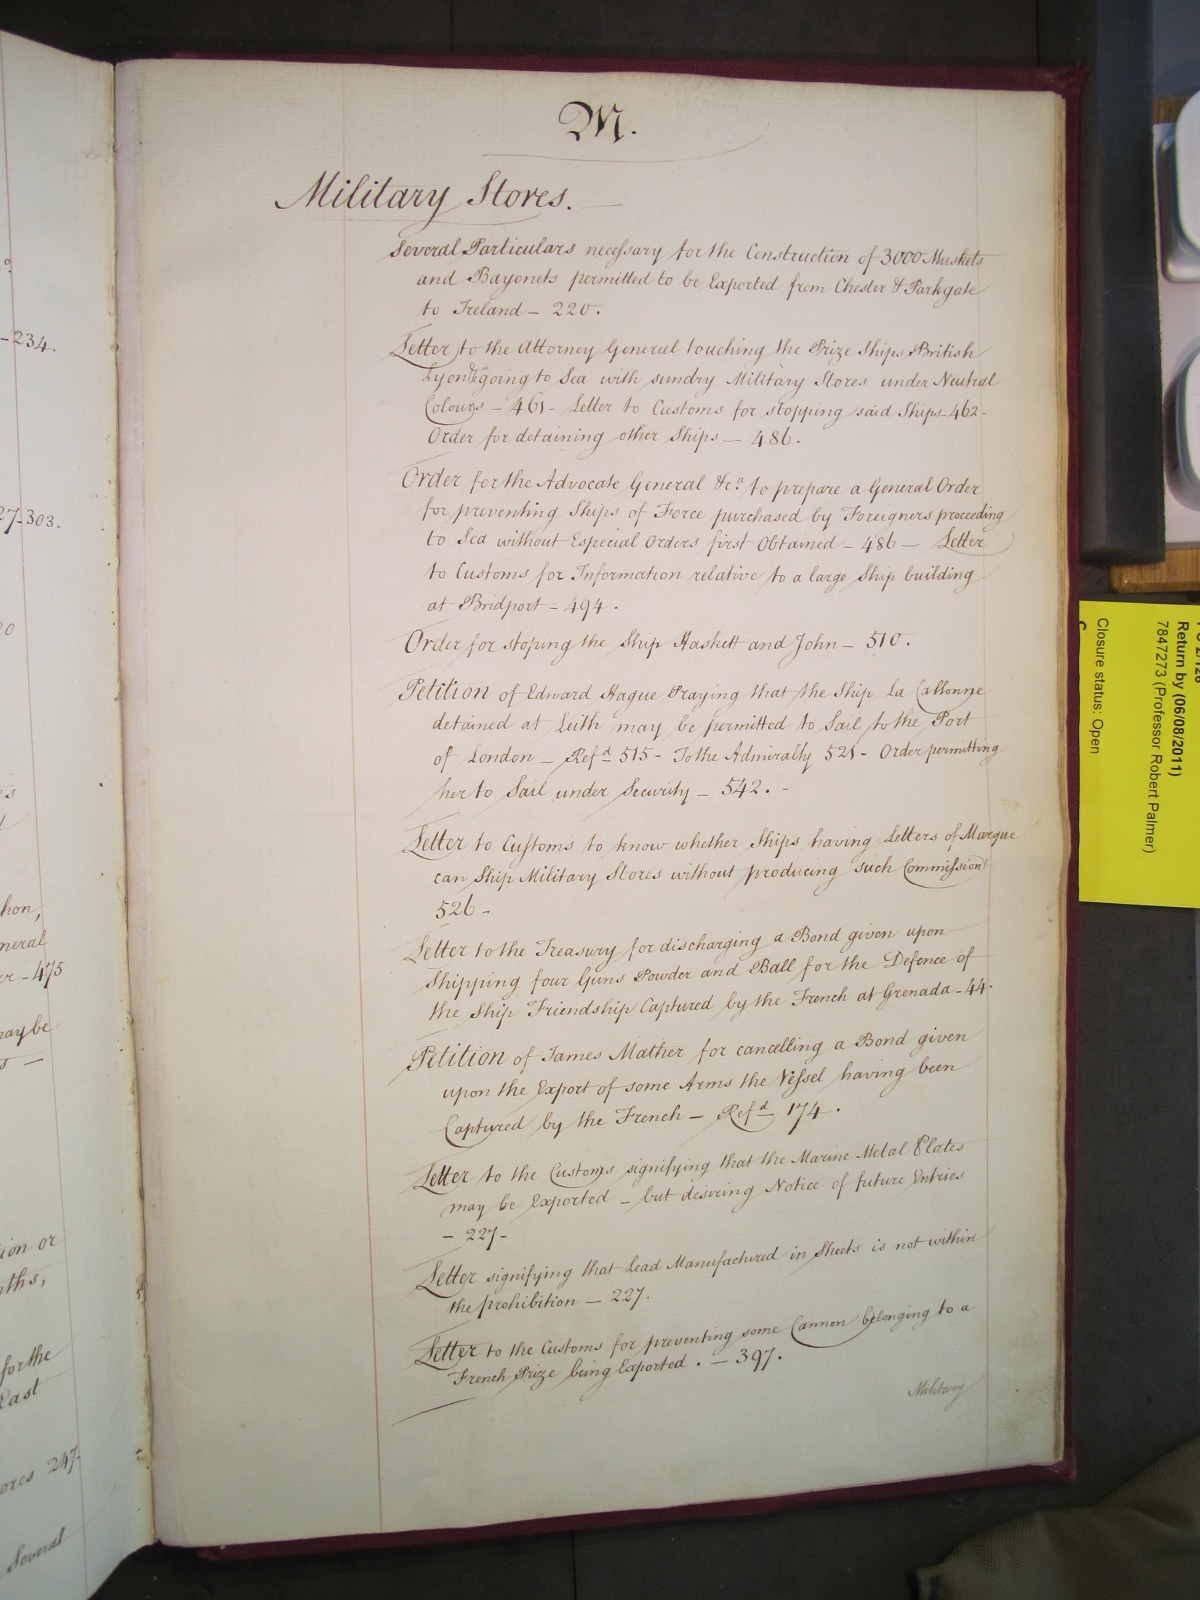 -234.
27-303.
hon,
neral
er-475
may be
ion or
nths,
for the
East
ores 247.
Several
M.
Military Stores.
Several Particulars necessary for the Construction of 3000 Muskets
and Bayonets permitted to be Exported from Chester & Parkgate
to Ireland - 220.
Letter to the Attorney General touching the Prize Ships British
Lyon &c going to Sea with sundry Military Stores under Neutral
Colours - 461 - Letter to Customs for stopping said Ships - 462 -
Order for detaining other Ships - 486.
Order for the Advocate General &ca. to prepare a General Order
for preventing Ships of Force purchased by Foreigners proceeding
to Sea without Especial Orders first Obtained - 486 - Letter
to Customs for Information relative to a large Ship building
at Bridport - 494.
Order for stoping the Ship Haskett and John - 510.
Petition of Edward Hague Praying that the Ship La Callonne
detained at Leith may be permitted to Sail to the Port
of London - Refd 515 - To the Admiralty 521 - Order permitting
her to Sail under Security - 542. -
Letter to Customs to know whether Ships having Letters of Marque
can Ship Military Stores without producing such Commission:
526 -
Letter to the Treasury for discharging a Bond given upon
Shipping four Guns Powder and Ball for the Defence of
the Ship Friendship Captured by the French at Grenada - 44.
Petition of James Mather for cancelling a Bond given
upon the Export of some Arms the Vessel having been
Captured by the French - Refd 174.
Letter to the Customs signifying that the Marine Metal Plates
may be Exported - but desiring Notice of future Entries
- 227 -
Letter signifying that Lead Manufactured in Sheets is not within
the prohibition - 227.
Letter to the Customs for preventing some Cannon belonging to a
French Prize being Exported. - 397.
Military
Return by (06/08/2011)
7847273 (Professor Robert Palmer)
Closure status: Open